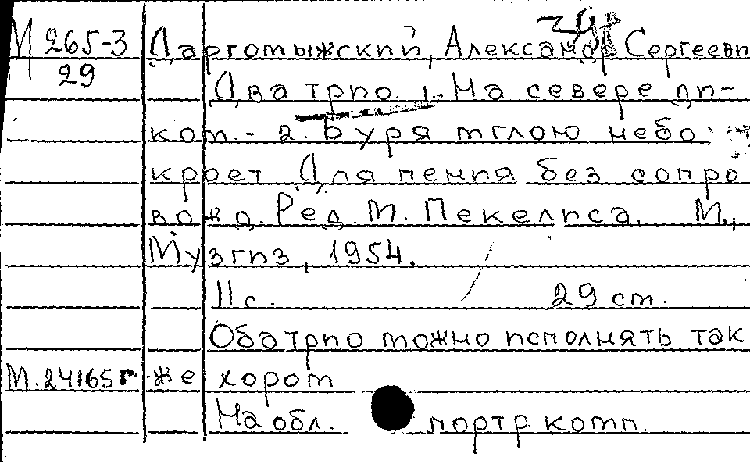 М 265-3 Даргомыжский, Александр Сергеевич
29 Два трио. 1. На севере ди-
ком.- 2. Буря мглою небо
кроет. Для пения без сопро
вожд. Ред. М. Пекелиса. М.,
Музгиз, 1954.
11 с. 29 см.
Оба трио можно исполнять так
М.24165г же хором
На обл. портр. комп.